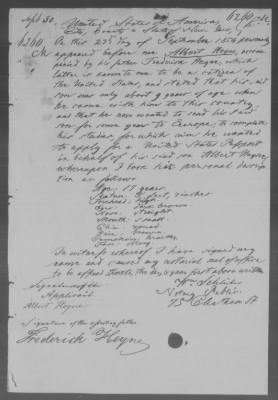 Sept 30.
6260
United States of America
City, County & State of New York
6260
On this 29th day of September 1870 personally
appeared before me Albert Heyne accom
panied by his father Frederick Heyne, which
latter is known to me to be a citizen of
the United States, and stated that his
son was only about 9 years of age when
he came with him to this country,
and that he now wanted to send his said
son for some years to Europe, to complete
his studies for which aim he wanted
to apply for a United States Passport
in behalf of his said son Albert Heyne,
whereupon I took his personal descrip
tion as follows
Age: 17 years
Stature: 5 feet, inches
Forehead: high
Eyes: dark brown
Nose: straight
Mouth: small
Chin: round
Hair: brown
Complexion: healthy
Face: long
In witness whereof I have signed my
name and caused my notarial seal of office
to be affixed thereto, the day & year first above written
Signature of the
Applicant
Albert Heyne
Notary Public
75 Chatham St
Signature of the father
Frederick Heyne